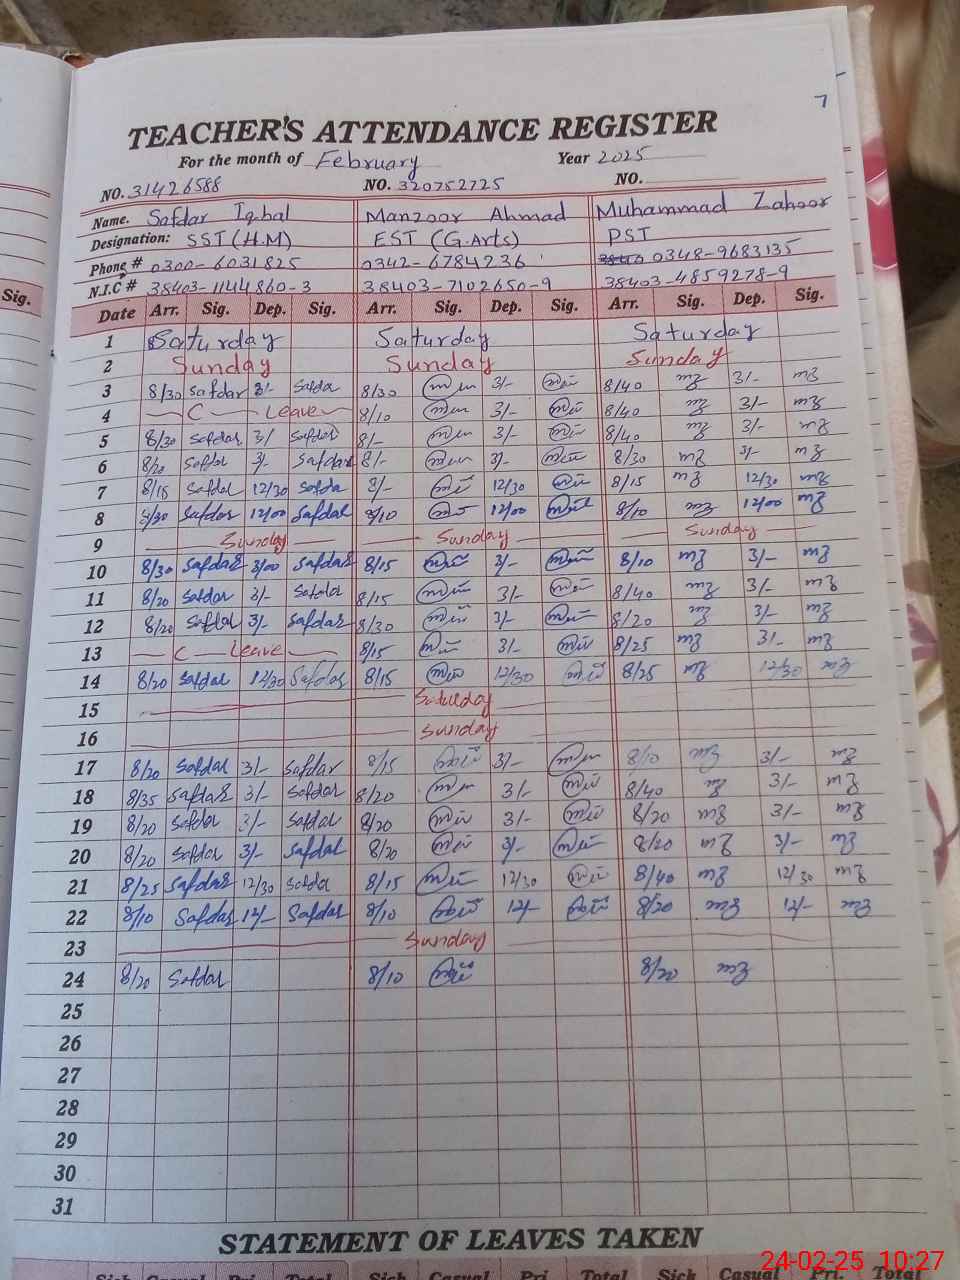 7
TEACHER'S ATTENDANCE REGISTER
For the month of February Year 2025
NO. 31426588 NO. 320752725 NO.
Name. Safdar Iqbal Manzoor Ahmad Muhammad Zahoor
Designation: SST (H.M) EST (G.Arts) PST
Phone # 0300-6031825 0342-6784236 0348-9683135
N.I.C # 38403-1144860-3 38403-7102650-9 38403-4859278-9
Sig. Date Arr. Sig. Dep. Sig. Arr. Sig. Dep. Sig. Arr. Sig. Dep. Sig.
1 Saturday Saturday Saturday
2 Sunday Sunday Sunday
3 8/30 Safdar 3/- Safda 8/30 3/- 8/40 3/-
4 C Leave 8/10 3/- 8/40 3/-
5 8/30 Safdar 3/ Safdar 8/- 3/- 8/40 3/-
6 8/20 Safdar 3/- Safdar 8/- 3/- 8/30 3/-
7 8/15 Safdar 12/30 Safda 8/- 12/30 8/15 12/30
8 8/30 Safdar 12/00 Safdar 8/10 12/00 8/10 12/00
9 Sunday Sunday Sunday
10 8/30 Safdar 3/00 Safdar 8/15 3/- 8/10 3/-
11 8/20 Safdar 3/- Safdar 8/15 3/- 8/40 3/-
12 8/20 Safdar 3/- Safdar 8/30 3/- 8/20 3/-
13 C Leave 8/15 3/- 8/25 3/-
14 8/20 Safdar 12/30 Safdar 8/15 12/30 8/25 12/30
15 Saturday
16 Sunday
17 8/20 Safdar 3/- Safdar 8/15 3/- 8/10 3/-
18 8/35 Safdar 3/- Safdar 8/20 3/- 8/40 3/-
19 8/20 Safdar 3/- Safdar 8/20 3/- 8/20 3/-
20 8/20 Safdar 3/- Safdar 8/20 3/- 8/20 3/-
21 8/25 Safdar 12/30 Safdar 8/15 12/30 8/40 12/30
22 8/10 Safdar 12/- Safdar 8/10 12/- 8/20 12/-
23 Sunday
24 8/20 Safdar 8/10 8/20
25
26
27
28
29
30
31
STATEMENT OF LEAVES TAKEN
Sick Casual Pri. Total Sick Casual Pri. Total Sick Casual Pri. Total
24-02-25 10:27